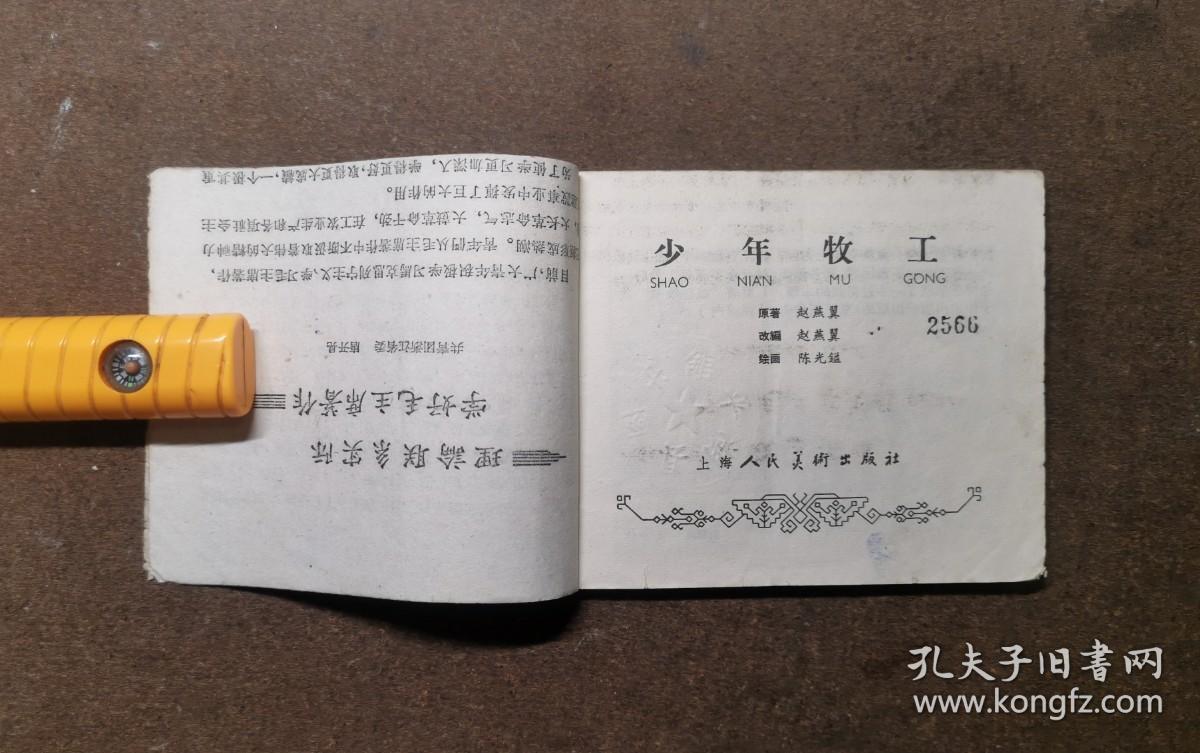 理論联系实际
学好毛主席著作
共青团浙江省委 盾开是
目前,广大青年积极学习馬克思列宁主义、学习毛主席著作,
形成热潮。青年們从毛主席著作中不断汲取着伟大的精神力
大长革命志气,大鼓革命干劲,在工农业生产和各項社会主
建設事业中发揮了巨大的作用。
为了使学习更加深入,学得更好,取得更大成績,一个极其重
少年牧工
SHAO NIAN MU GONG
原著 赵燕翼
改編 赵燕翼
绘画 陈光鎰
2566
上海人民美術出版社
孔夫子旧书网
www.kongfz.com